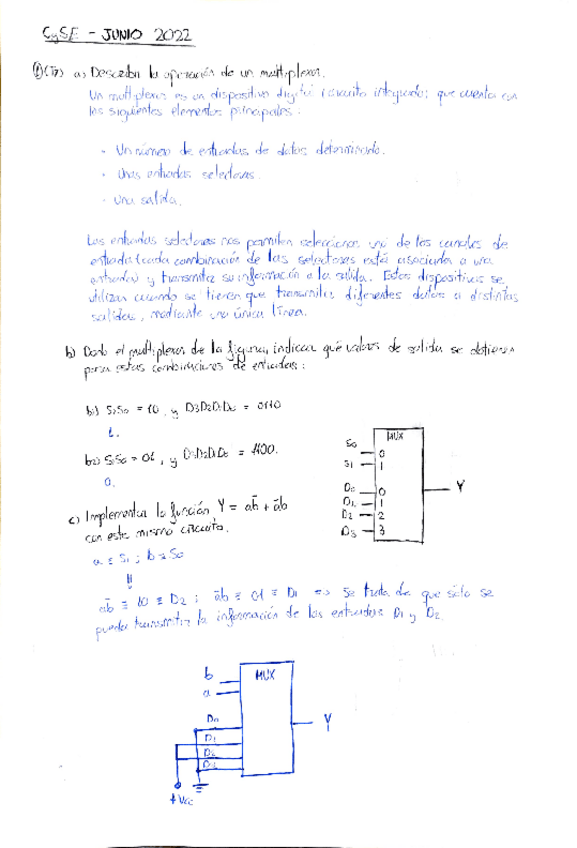 CySE - JUNIO 2022
①(T7) a) Describa la operación de un multiplexor.
Un multiplexor es un dispositivo digital (circuito integrado) que cuenta con
los siguientes elementos principales:
- Un número de entradas de datos determinado.
- Unas entradas selectoras.
- Una salida.
Las entradas selectoras nos permiten seleccionar uno de los canales de
entrada (cada combinación de las selectoras está asociada a una
entrada) y transmitir su información a la salida. Estos dispositivos se
utilizan cuando se tienen que transmitir diferentes datos a distintas
salidas, mediante una única línea.
b) Dado el multiplexor de la figura, indica qué valores de salida se obtienen
para estas combinaciones de entradas:
b1) S1S0 = 10, y D3D2D1D0 = 0110
1.
b2) S1S0 = 01, y D3D2D1D0 = 1100.
0.
MUX
S0 0
S1 1
D0 0
D1 1
D2 2
D3 3
Y
c) Implementar la función Y = ab̄ + āb
con este mismo circuito.
a ≡ S1; b ≡ S0
⇓
ab̄ ≡ 10 ≡ D2; āb ≡ 01 ≡ D1 ⇒ Se trata de que sólo se
pueda transmitir la información de las entradas D1 y D2.
b
a
MUX
D0
D1
D2
D3
Y
+Vcc